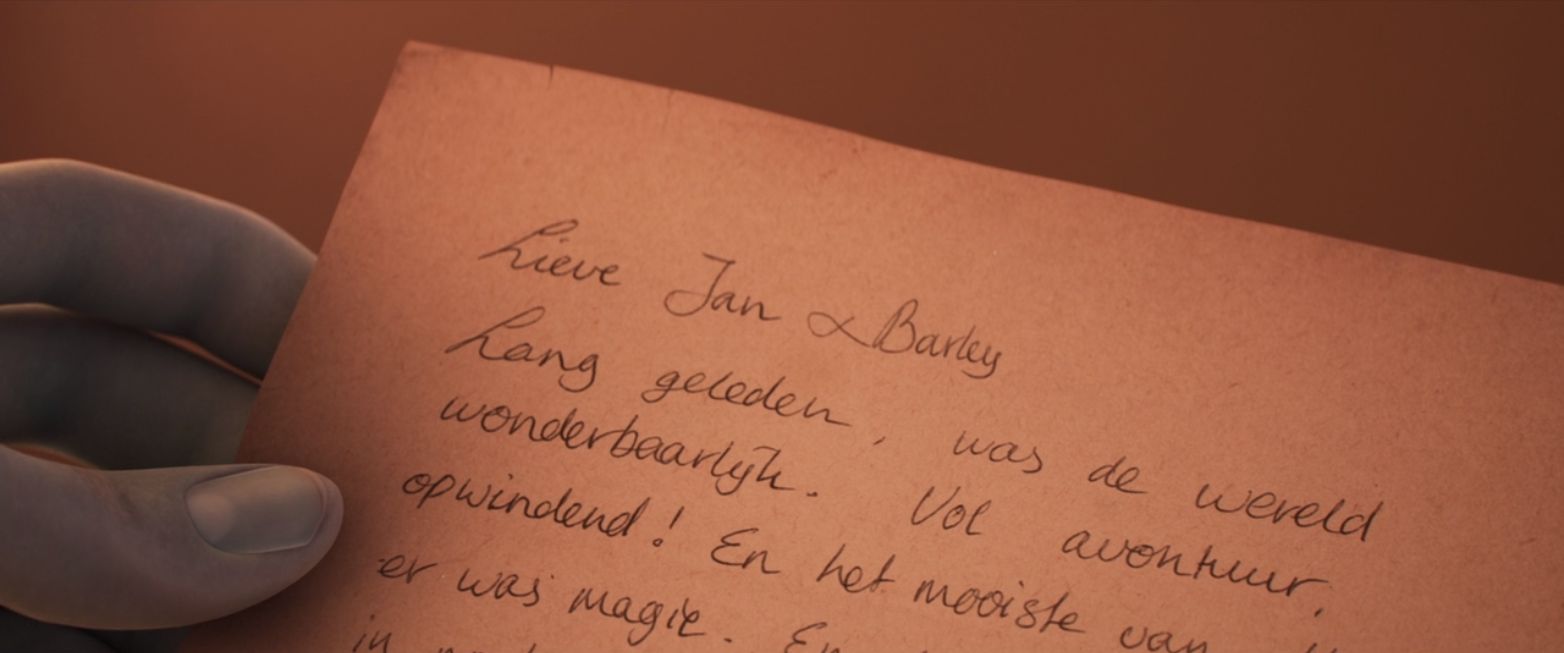 Lieve Jan & Barley
Lang geleden, was de wereld
wonderbaarlijk. Vol avontuur,
opwindend! En het mooiste van
er was magie. En
in